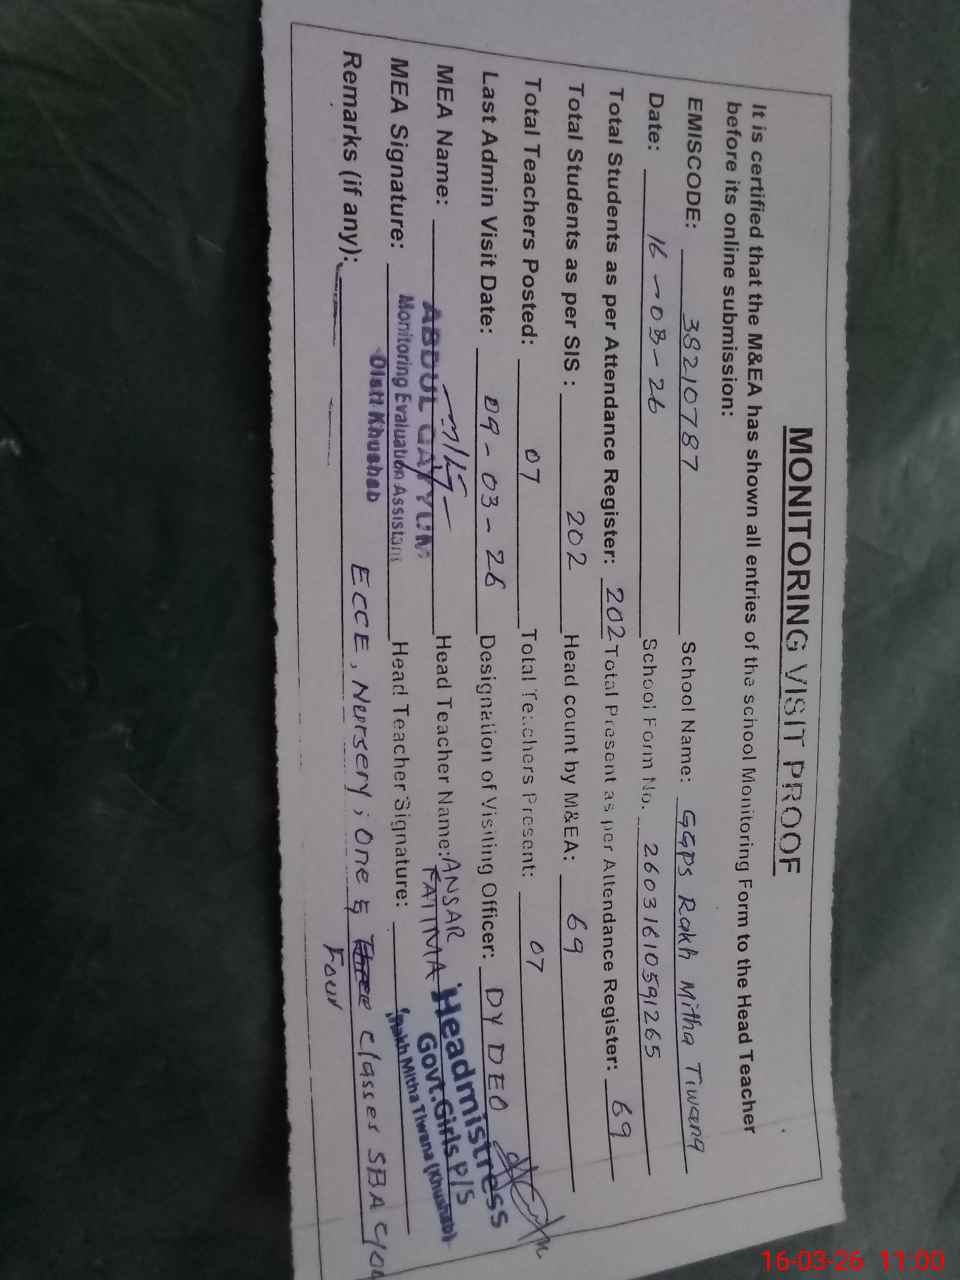 MONITORING VISIT PROOF
It is certified that the M&EA has shown all entries of the school Monitoring Form to the Head Teacher
before its online submission:
EMISCODE: 38210787 School Name: GGPS Rakh Mitha Tiwana
Date: 16-03-26 School Form No. 26031610591265
Total Students as per Attendance Register: 202 Total Present as per Attendance Register: 69
Total Students as per SIS : 202 Head count by M&EA: 69
Total Teachers Posted: 07 Total Teachers Present: 07
Last Admin Visit Date: 09-03-26 Designation of Visiting Officer: DY DEO
MEA Name: ABDUL QAYYUM Head Teacher Name: ANSAR FATIMA
MEA Signature: Monitoring Evaluation Assistant Head Teacher Signature:
Distt Khushab
Headmistress
Govt. Girls P/S
Rakh Mitha Tiwana (Khushab)
Remarks (if any): ECCE, Nursery, One & classes SBA
Four
16-03-26 11:00